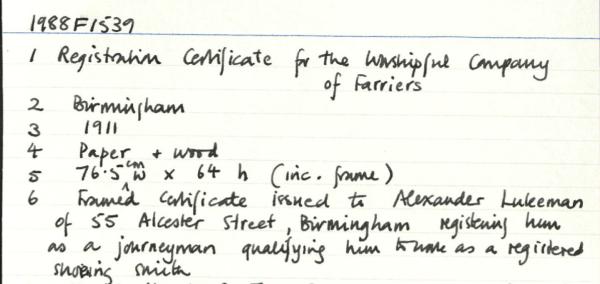 1988F1539
1 Registration Certificate for the Worshipful Company
of Farriers
2 Birmingham
3 1911
4 Paper + wood
5 76.5 cm w x 64 h (inc. frame)
6 Framed certificate issued to Alexander Lukeman
of 55 Alcester Street, Birmingham registering him
as a journeyman qualifying him to as a registered
shoeing smith